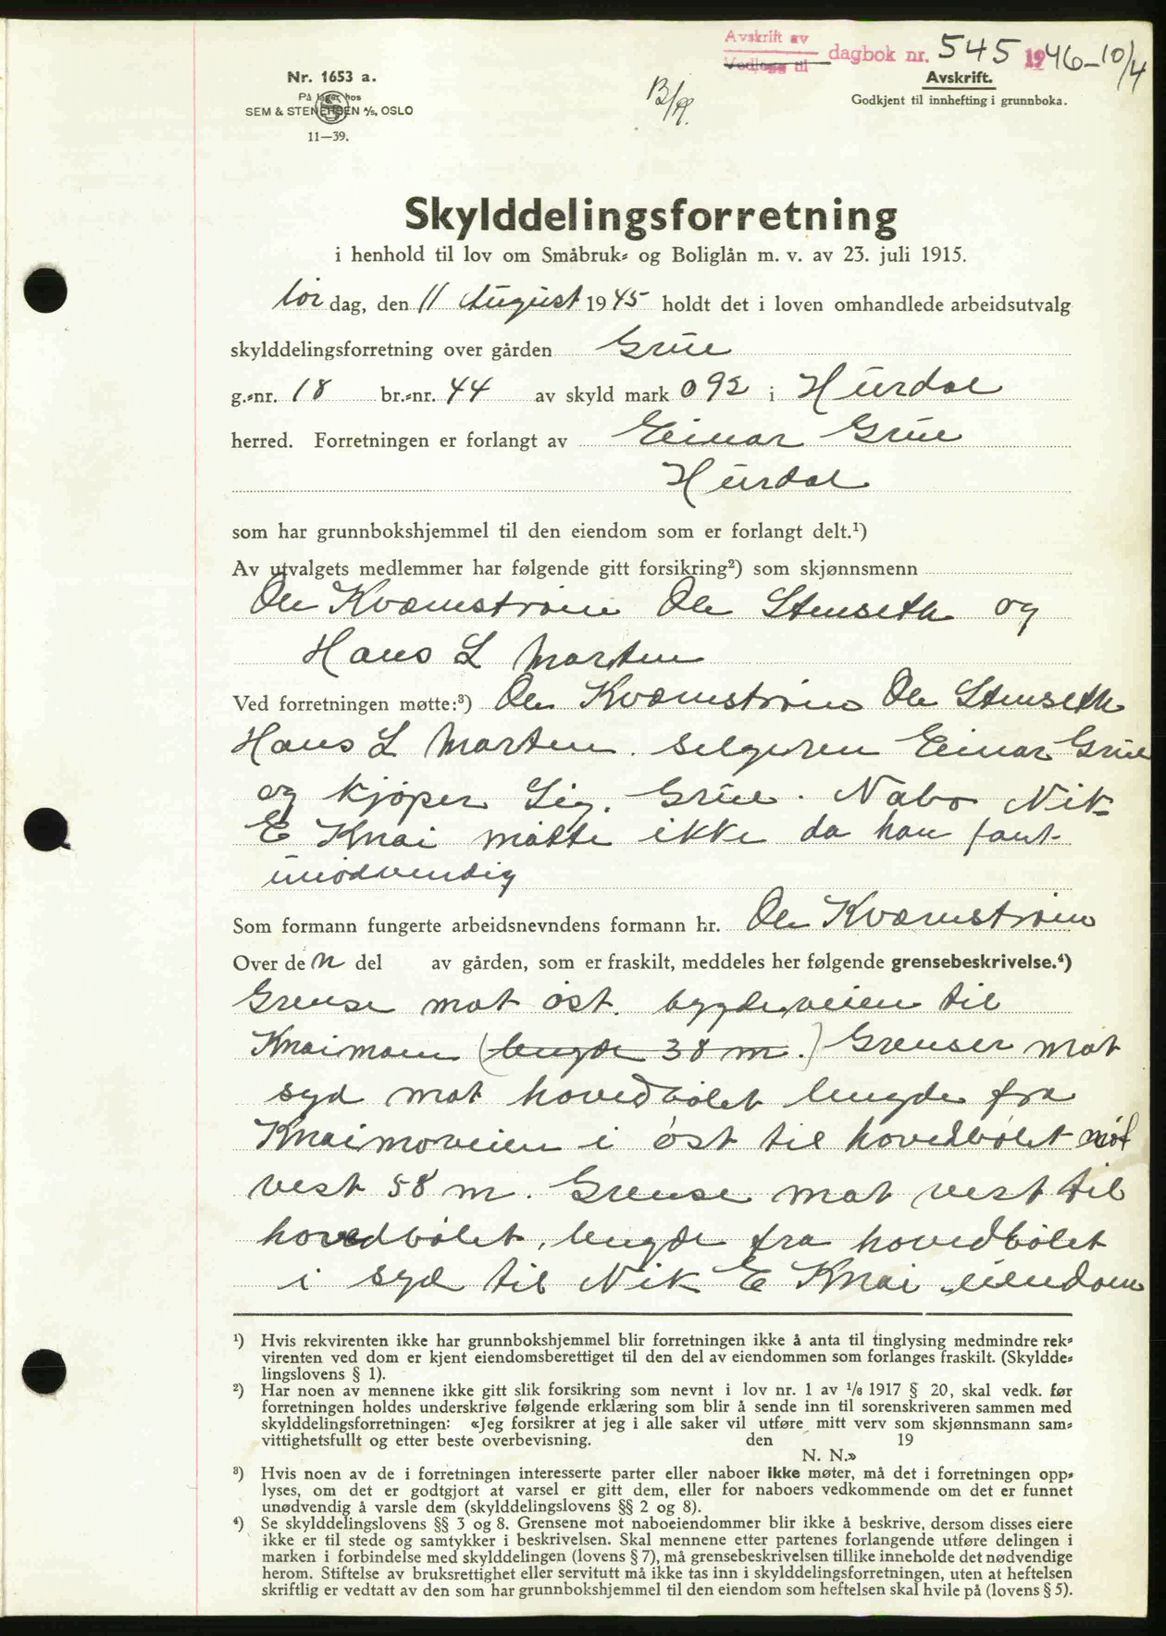 Avskrift av
Vedlegg til dagbok nr. 545 1946-10/4
Nr. 1653 a.
På lager hos
SEM & STENERSEN A/S, OSLO
11—39.
Avskrift.
Godkjent til innhefting i grunnboka.
Skylddelingsforretning
i henhold til lov om Småbruk- og Boliglån m. v. av 23. juli 1915.
Lørdag, den 11 August 1945 holdt det i loven omhandlede arbeidsutvalg
skylddelingsforretning over gården Grue
g.-nr. 18 br.-nr. 44 av skyld mark 092 i Hurdal
herred. Forretningen er forlangt av Einar Grue
Hurdal
som har grunnbokshjemmel til den eiendom som er forlangt delt.¹)
Av utvalgets medlemmer har følgende gitt forsikring²) som skjønnsmenn
Ole Kværnstrøm Ole Stenseth og
Hans L Morten
Ved forretningen møtte:³) Ole Kværnstrøm Ole Stenseth
Hans L Morten. selgeren Einar Grue
og kjøper Sig. Grue. Nabo Nik
E Knai møtte ikke da han fant
unødvendig
Som formann fungerte arbeidsnevndens formann hr. Ole Kværnstrøm
Over den del av gården, som er fraskilt, meddeles her følgende grensebeskrivelse.⁴)
Grense mot øst. bygdeveien til
Knaimoen (lengde 38 m.) Grenser mot
syd mot hovedbølet lengde fra
Knaimoveien i øst til hovedbølet mot
vest 58 m. Grense mot vest til
hovedbølet, lengde fra hovedbølet
i syd til Nik E Knai eiendom
¹) Hvis rekvirenten ikke har grunnbokshjemmel blir forretningen ikke å anta til tinglysing medmindre rek-
virenten ved dom er kjent eiendomsberettiget til den del av eiendommen som forlanges fraskilt. (Skyldde-
lingslovens § 1).
²) Har noen av mennene ikke gitt slik forsikring som nevnt i lov nr. 1 av 1/6 1917 § 20, skal vedk. før
forretningen holdes underskrive følgende erklæring som blir å sende inn til sorenskriveren sammen med
skylddelingsforretningen: «Jeg forsikrer at jeg i alle saker vil utføre mitt verv som skjønnsmann sam-
vittighetsfullt og etter beste overbevisning. den 19
N. N.»
³) Hvis noen av de i forretningen interesserte parter eller naboer ikke møter, må det i forretningen opp-
lyses, om det er godtgjort at varsel er gitt dem, eller for naboers vedkommende om det er funnet
unødvendig å varsle dem (skylddelingslovens §§ 2 og 8).
⁴) Se skylddelingslovens §§ 3 og 8. Grensene mot naboeiendommer blir ikke å beskrive, dersom disses eiere
ikke er til stede og samtykker i beskrivelsen. Skal mennene etter partenes forlangende utføre delingen i
marken i forbindelse med skylddelingen (lovens § 7), må grensebeskrivelsen tillike inneholde det nødvendige
herom. Stiftelse av bruksrettighet eller servitutt må ikke tas inn i skylddelingsforretningen, uten at heftelsen
skriftlig er vedtatt av den som har grunnbokshjemmel til den eiendom som heftelsen skal hvile på (lovens § 5).